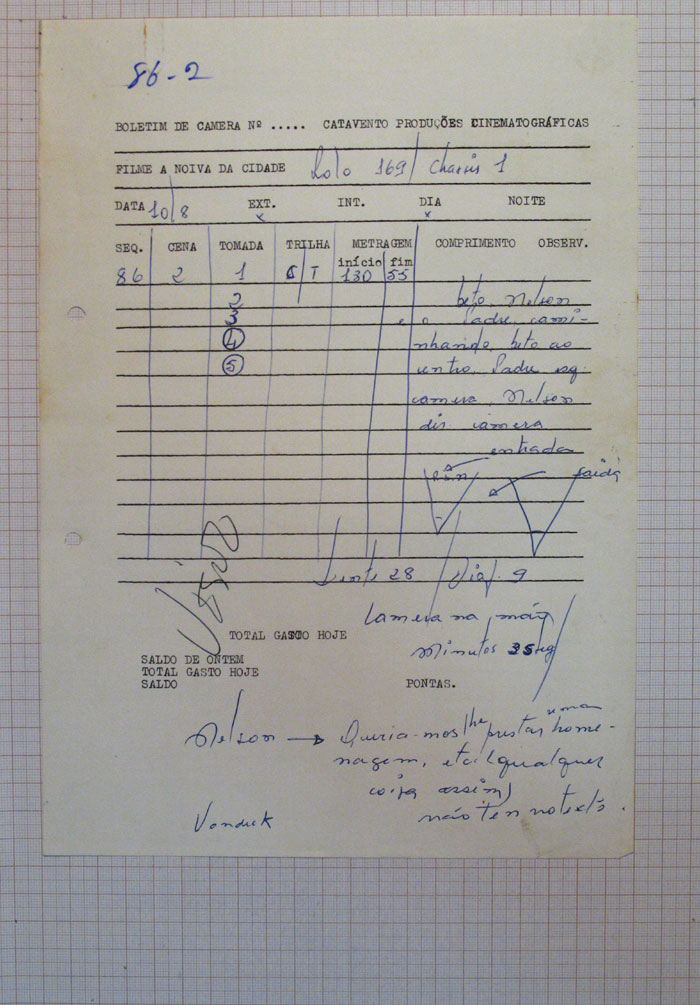 86-2
BOLETIM DE CAMERA Nº ..... CATAVENTO PRODUÇÕES CINEMATOGRÁFICAS
FILME A NOIVA DA CIDADE Rolo 169/ Chassis 1
DATA 10/8 EXT. INT. DIA NOITE
x x
SEQ. CENA TOMADA TRILHA METRAGEM COMPRIMENTO OBSERV.
início fim
86 2 1 C T 130 55
2 beto, Nelson
3 e o Padre, cami-
4 nhando, beto ao
5 centro, Padre esq.
camera, Nelson
dir. camera
entrada
saída
Lente 28 / Diaf. 9
Camera na mão
TOTAL GASTO HOJE
Minutos 35 seg
SALDO DE ONTEM
TOTAL GASTO HOJE
SALDO PONTAS.
uma
Nelson → Queria-mos lhe prestar home-
nagem, etc (qualquer
coisa assim)
não tem no texto.